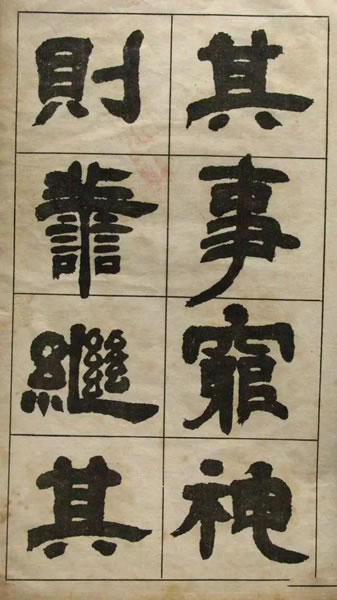 其事窮神
則譱繼其